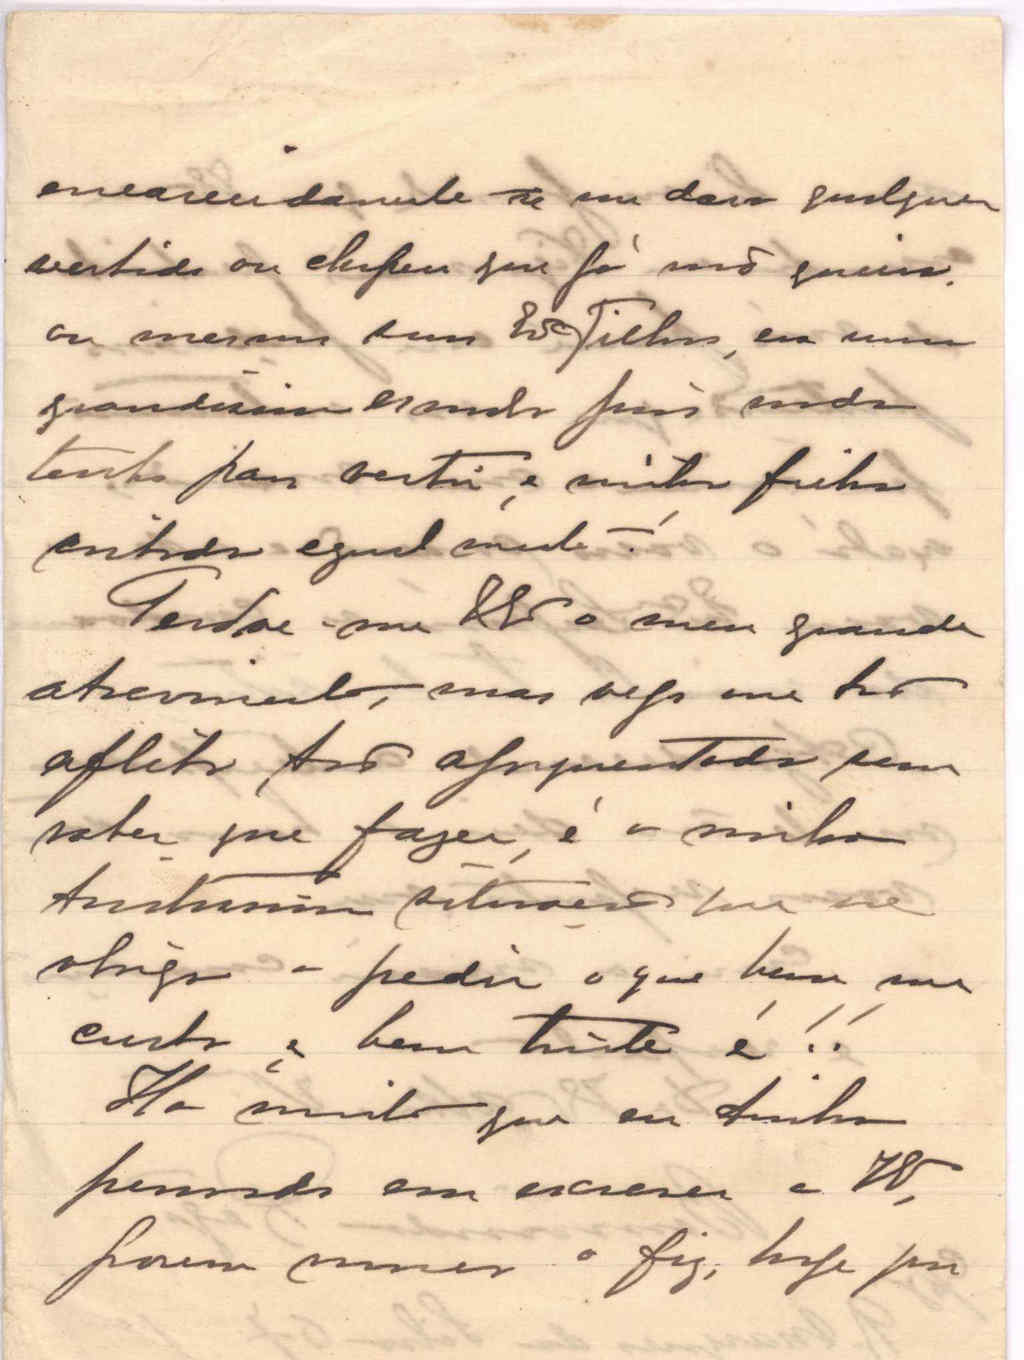 encarecidamente se me dava qualquer
vestido ou chapeu que já não queira.
ou mesmo suas Ex Filhas, era uma
grandissima esmola pois nada
tenho para vestir, e minha filha
entrada egual mente!
Perdoe-me V Ex o meu grande
atrevimento, mas vejo me tão
aflita, tão apoquentada sem
saber que fazer, é a minha
tristissima situação que me
obriga a pedir o que bem me
custa, e bem triste é!!
Ha muito que eu tinha
pensado em escrever a V Ex,
porem nunca o fiz, hoje por